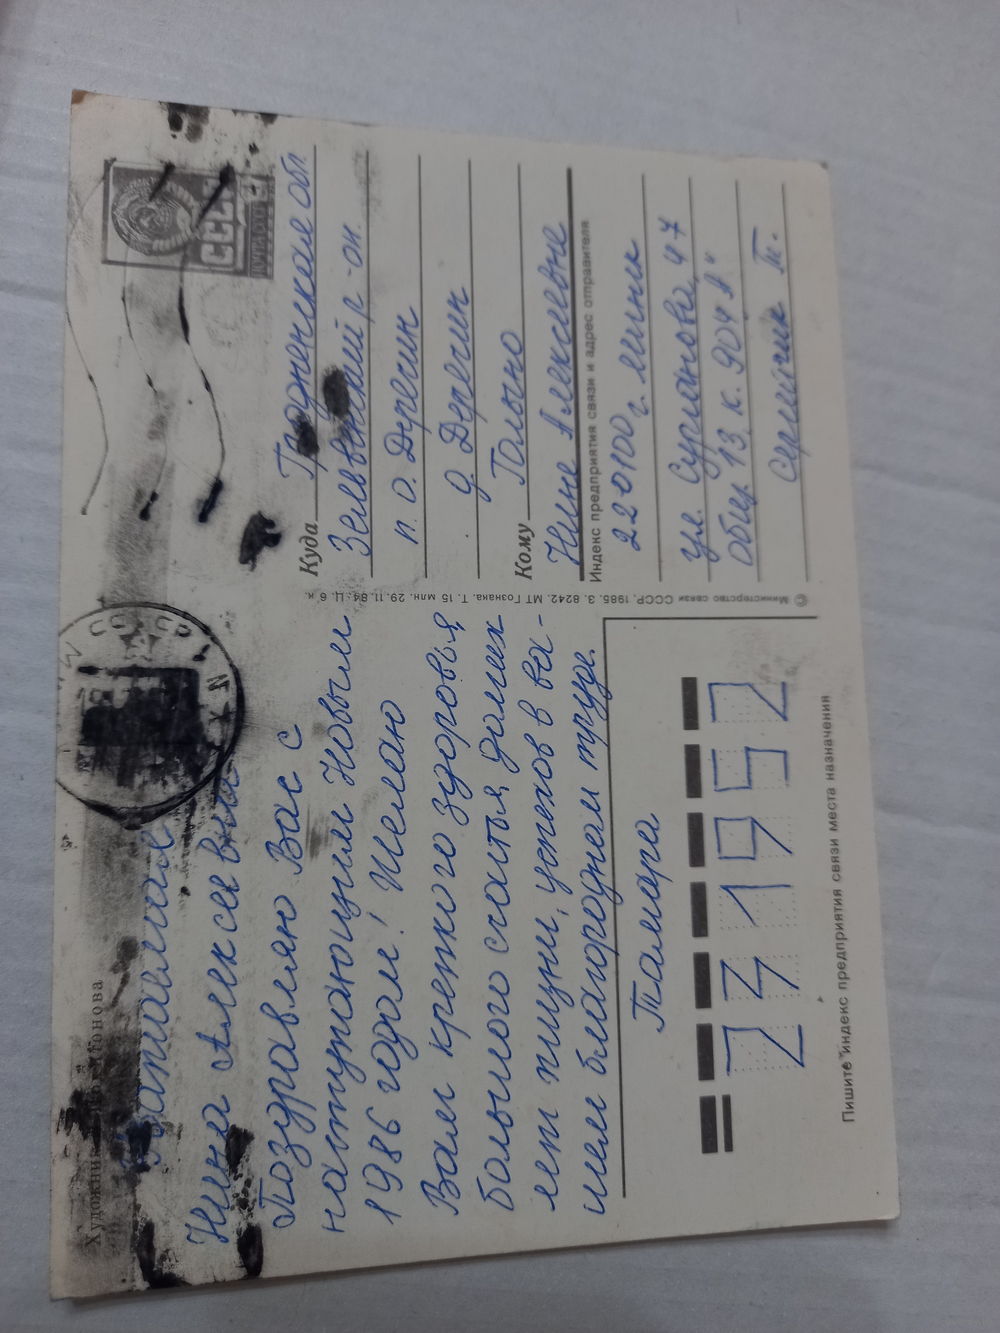 Художник
Уважаемая
Нина Алексеевна
Поздравляю Вас с
наступающим Новым
1986 годом! Желаю
Вам крепкого здоровья,
большого счастья, долгих
лет жизни, успехов в ва-
шем благородном труде.
Тамара
231952
Пишите индекс предприятия связи места назначения
© Министерство связи СССР, 1985. З. 8242. МТ Гознака. Т. 15 млн. 29.11.84. Ц. 6 к.
СССР
ПОЧТА
Куда Гродненская обл
Зельвенский р-он.
п. о. Деречин
д. Деречин
Кому
Нине Алексеевне
Индекс предприятия связи и адрес отправителя
220100 г. Минск
ул. Сурганова, 47
Общ. 13 к. 904 А"
Т.